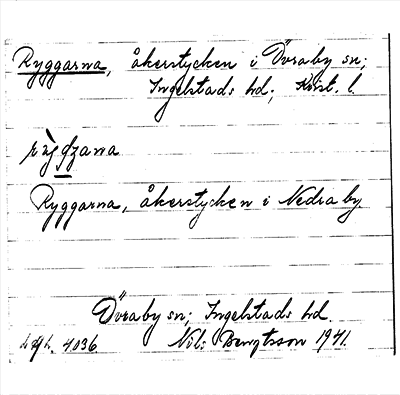 Ryggarna, åkerstycken i Övraby sn;
Ingelstads hd; Krist. l.
Ryggarna, åkerstycken i Nedraby
Övraby sn; Ingelstads hd.
4036. Nils Bengtsson 1941.